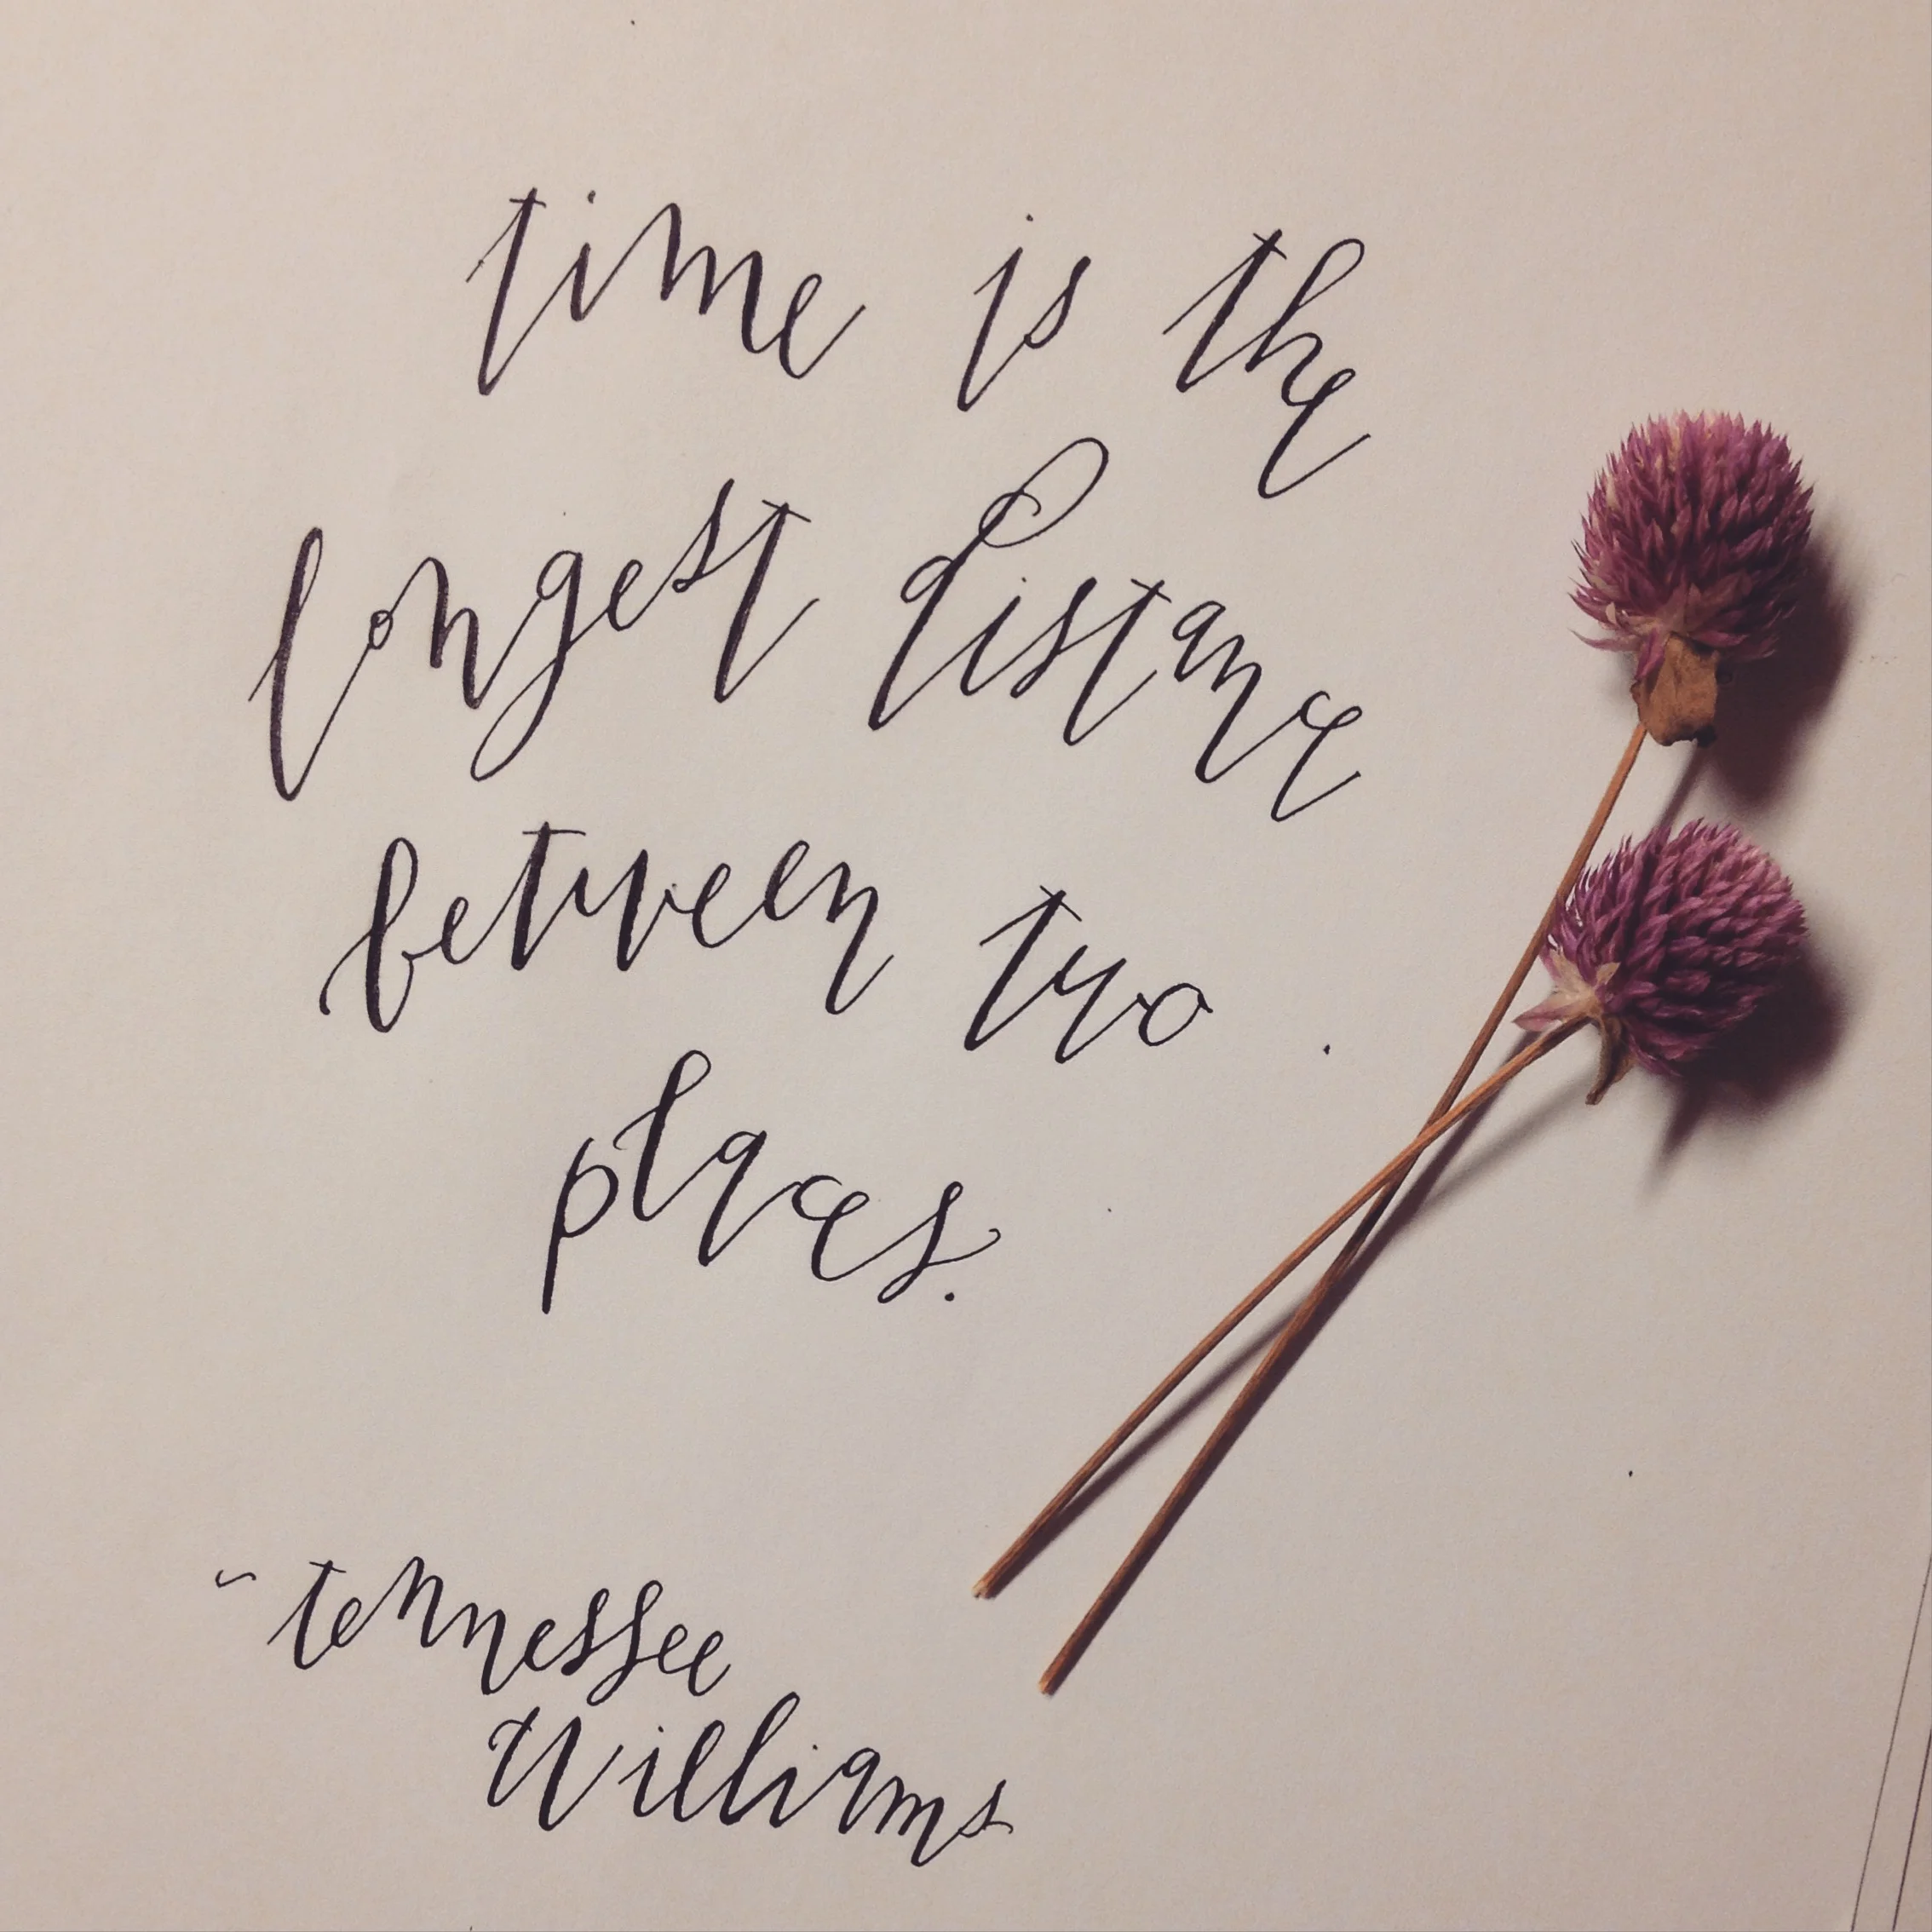 time is the
longest distance
between two
places.
~ tennessee
williams